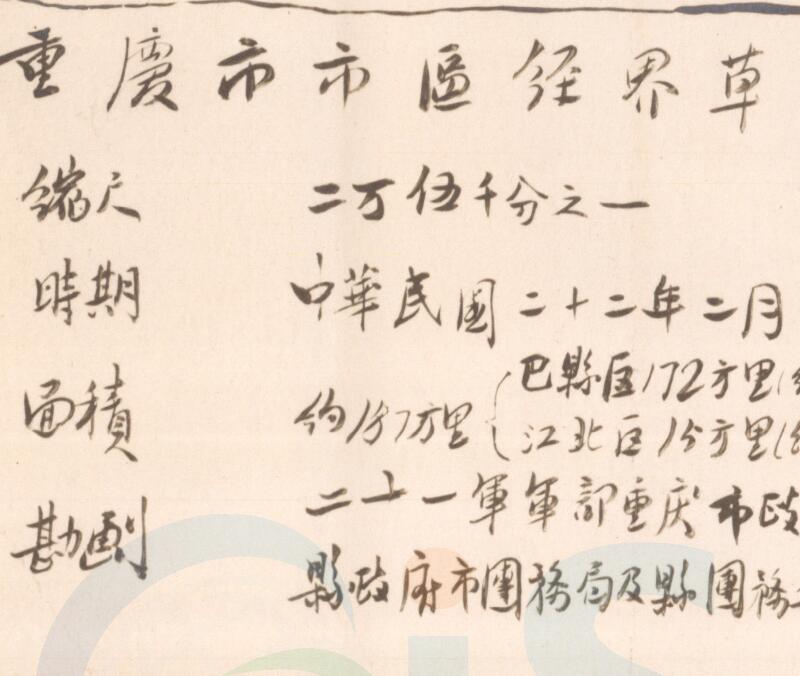 重慶市市區経界草
縮尺 二万伍千分之一
時期 中華民國二十二年二月
面積 約187方里 巴縣区172方里
江北区15方里
勘劃 二十一軍軍部重庆市政
縣政府市團務局及縣團務